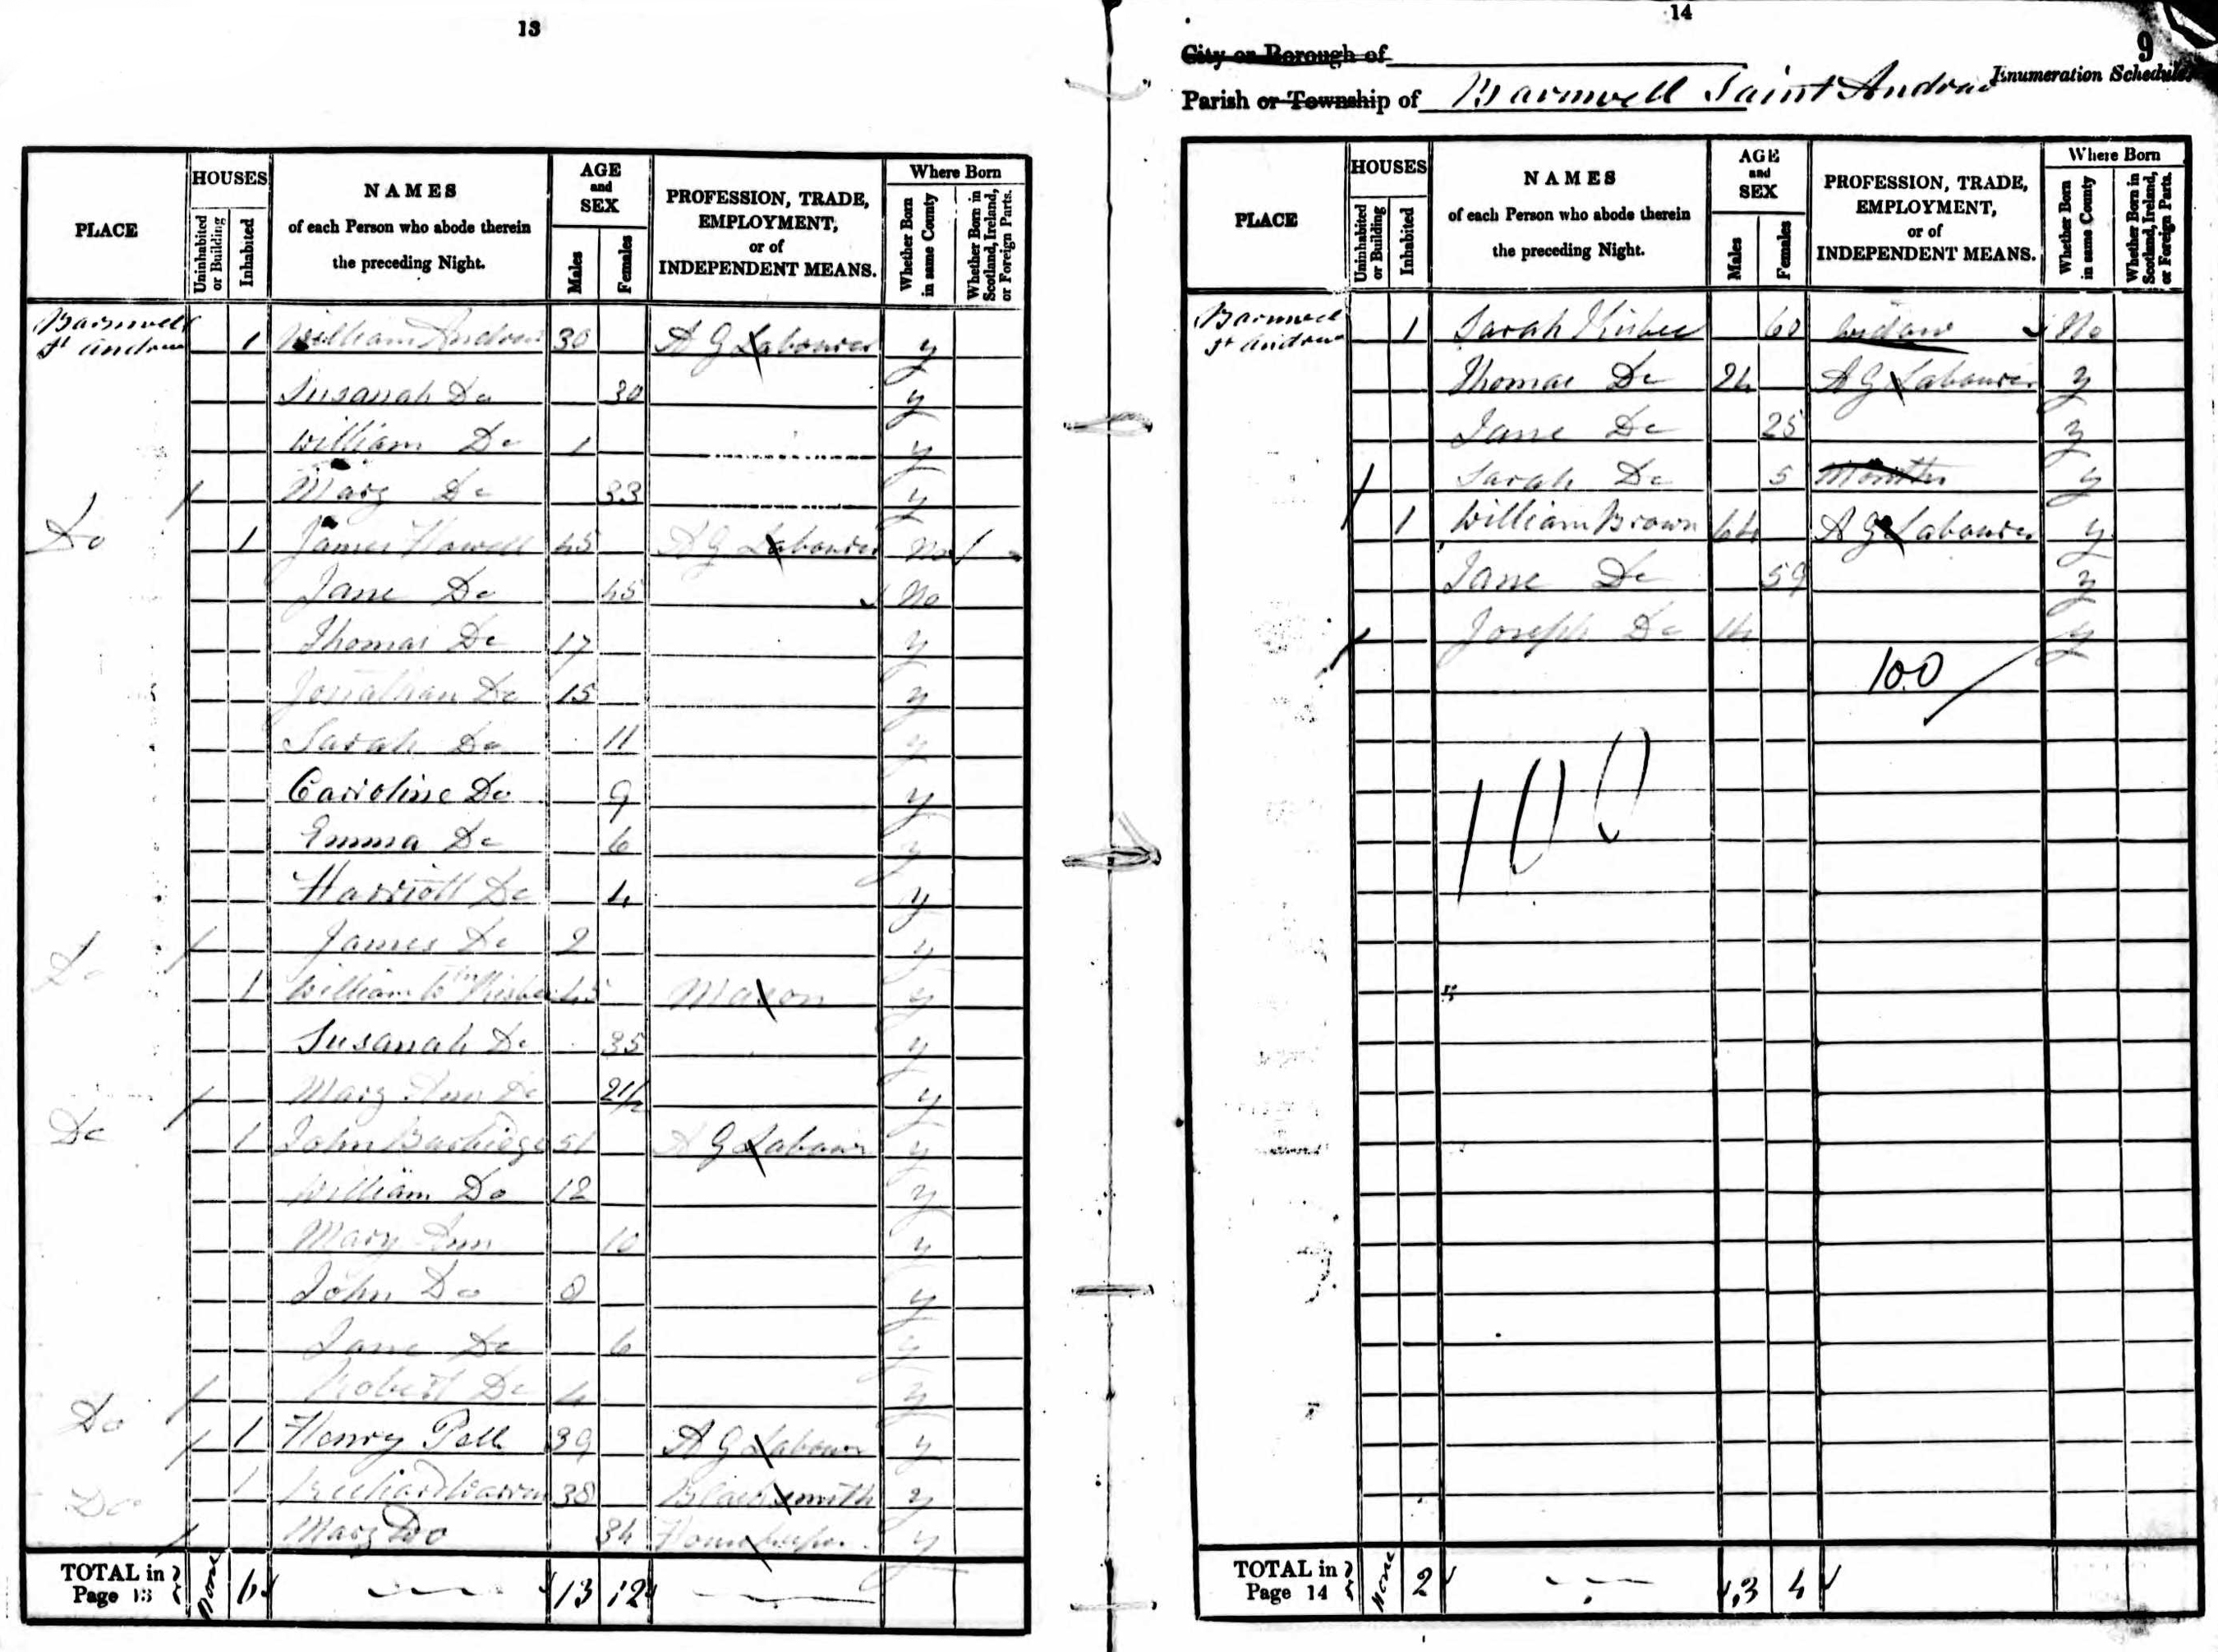 13
PLACE
HOUSES
Uninhabited or Building
Inhabited
NAMES
of each Person who abode therein
the preceding Night.
AGE
and
SEX
Males
Females
PROFESSION, TRADE,
EMPLOYMENT,
or of
INDEPENDENT MEANS.
Where Born
Whether Born in same County
Whether Born in Scotland, Ireland, or Foreign Parts.
Barnwell
St Andrew 1 William Andrew 30 A G Labourer y
Susanah Do 30 y
William Do 1 y
Mary Do 33 y
Do 1 James Howell 45 A G Labourer No
Jane Do 45 No
Thomas Do 17 y
Jonathan Do 15 y
Sarah Do 11 y
Carroline Do 9 y
Emma Do 6 y
Harriott Do 4 y
James Do 2 y
Do 1 William 45 Mason y
Susanah Do 35 y
Mary Ann Do 2 1/2 y
Do 1 John 51 A G Labour y
William Do 12 y
Mary Ann 10 y
John Do 8 y
Jane Do 6 y
Robert Do 4 y
Do 1 Henry Pell 39 A G Labour y
Do 1 Richard Warren 38 Blacksmith y
Mary Do 34 y
TOTAL in
Page 13 None 6 13 12
14
9
City or Borough of
Enumeration Schedule
Parish or Township of Barnwell Saint Andrew
PLACE
HOUSES
Uninhabited or Building
Inhabited
NAMES
of each Person who abode therein
the preceding Night.
AGE
and
SEX
Males
Females
PROFESSION, TRADE,
EMPLOYMENT,
or of
INDEPENDENT MEANS.
Where Born
Whether Born in same County
Whether Born in Scotland, Ireland, or Foreign Parts.
Barnwell
St Andrew 1 Sarah 60 Widow No
Thomas Do 24 A G Labourer y
Jane Do 25 y
Sarah Do 5 Months y
1 William Brown 64 A G Labourer y
Jane Do 59 y
Joseph Do 14 y
100
100
TOTAL in
Page 14 None 2 3 4